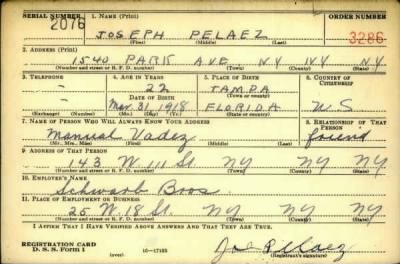 SERIAL NUMBER 1. NAME (Print) ORDER NUMBER
2076 JOSEPH PELAEZ 3286
(First) (Middle) (Last)
2. ADDRESS (Print)
1540 PARK AVE NY NY NY
(Number and street or R. F. D. number) (Town) (County) (State)
3. TELEPHONE 4. AGE IN YEARS 5. PLACE OF BIRTH 6. COUNTRY OF CITIZENSHIP
- 22 TAMPA
DATE OF BIRTH (Town or county)
- Mar. 31, 1918 FLORIDA U.S
(Exchange) (Number) (Mo.) (Day) (Yr.) (State or country)
7. NAME OF PERSON WHO WILL ALWAYS KNOW YOUR ADDRESS 8. RELATIONSHIP OF THAT PERSON
Manual Vadez friend
(Mr., Mrs., Miss) (First) (Middle) (Last)
9. ADDRESS OF THAT PERSON
143 W 111 St. NY NY NY
(Number and street or R. F. D. number) (Town) (County) (State)
10. EMPLOYER'S NAME
Schwarb Bros.
11. PLACE OF EMPLOYMENT OR BUSINESS
25 W. 18 St. NY NY
(Number and street or R. F. D. number) (Town) (County) (State)
I AFFIRM THAT I HAVE VERIFIED ABOVE ANSWERS AND THAT THEY ARE TRUE.
REGISTRATION CARD
D. S. S. Form 1 (over) 16-17105 Joe Pelaez
(Registrant's signature)